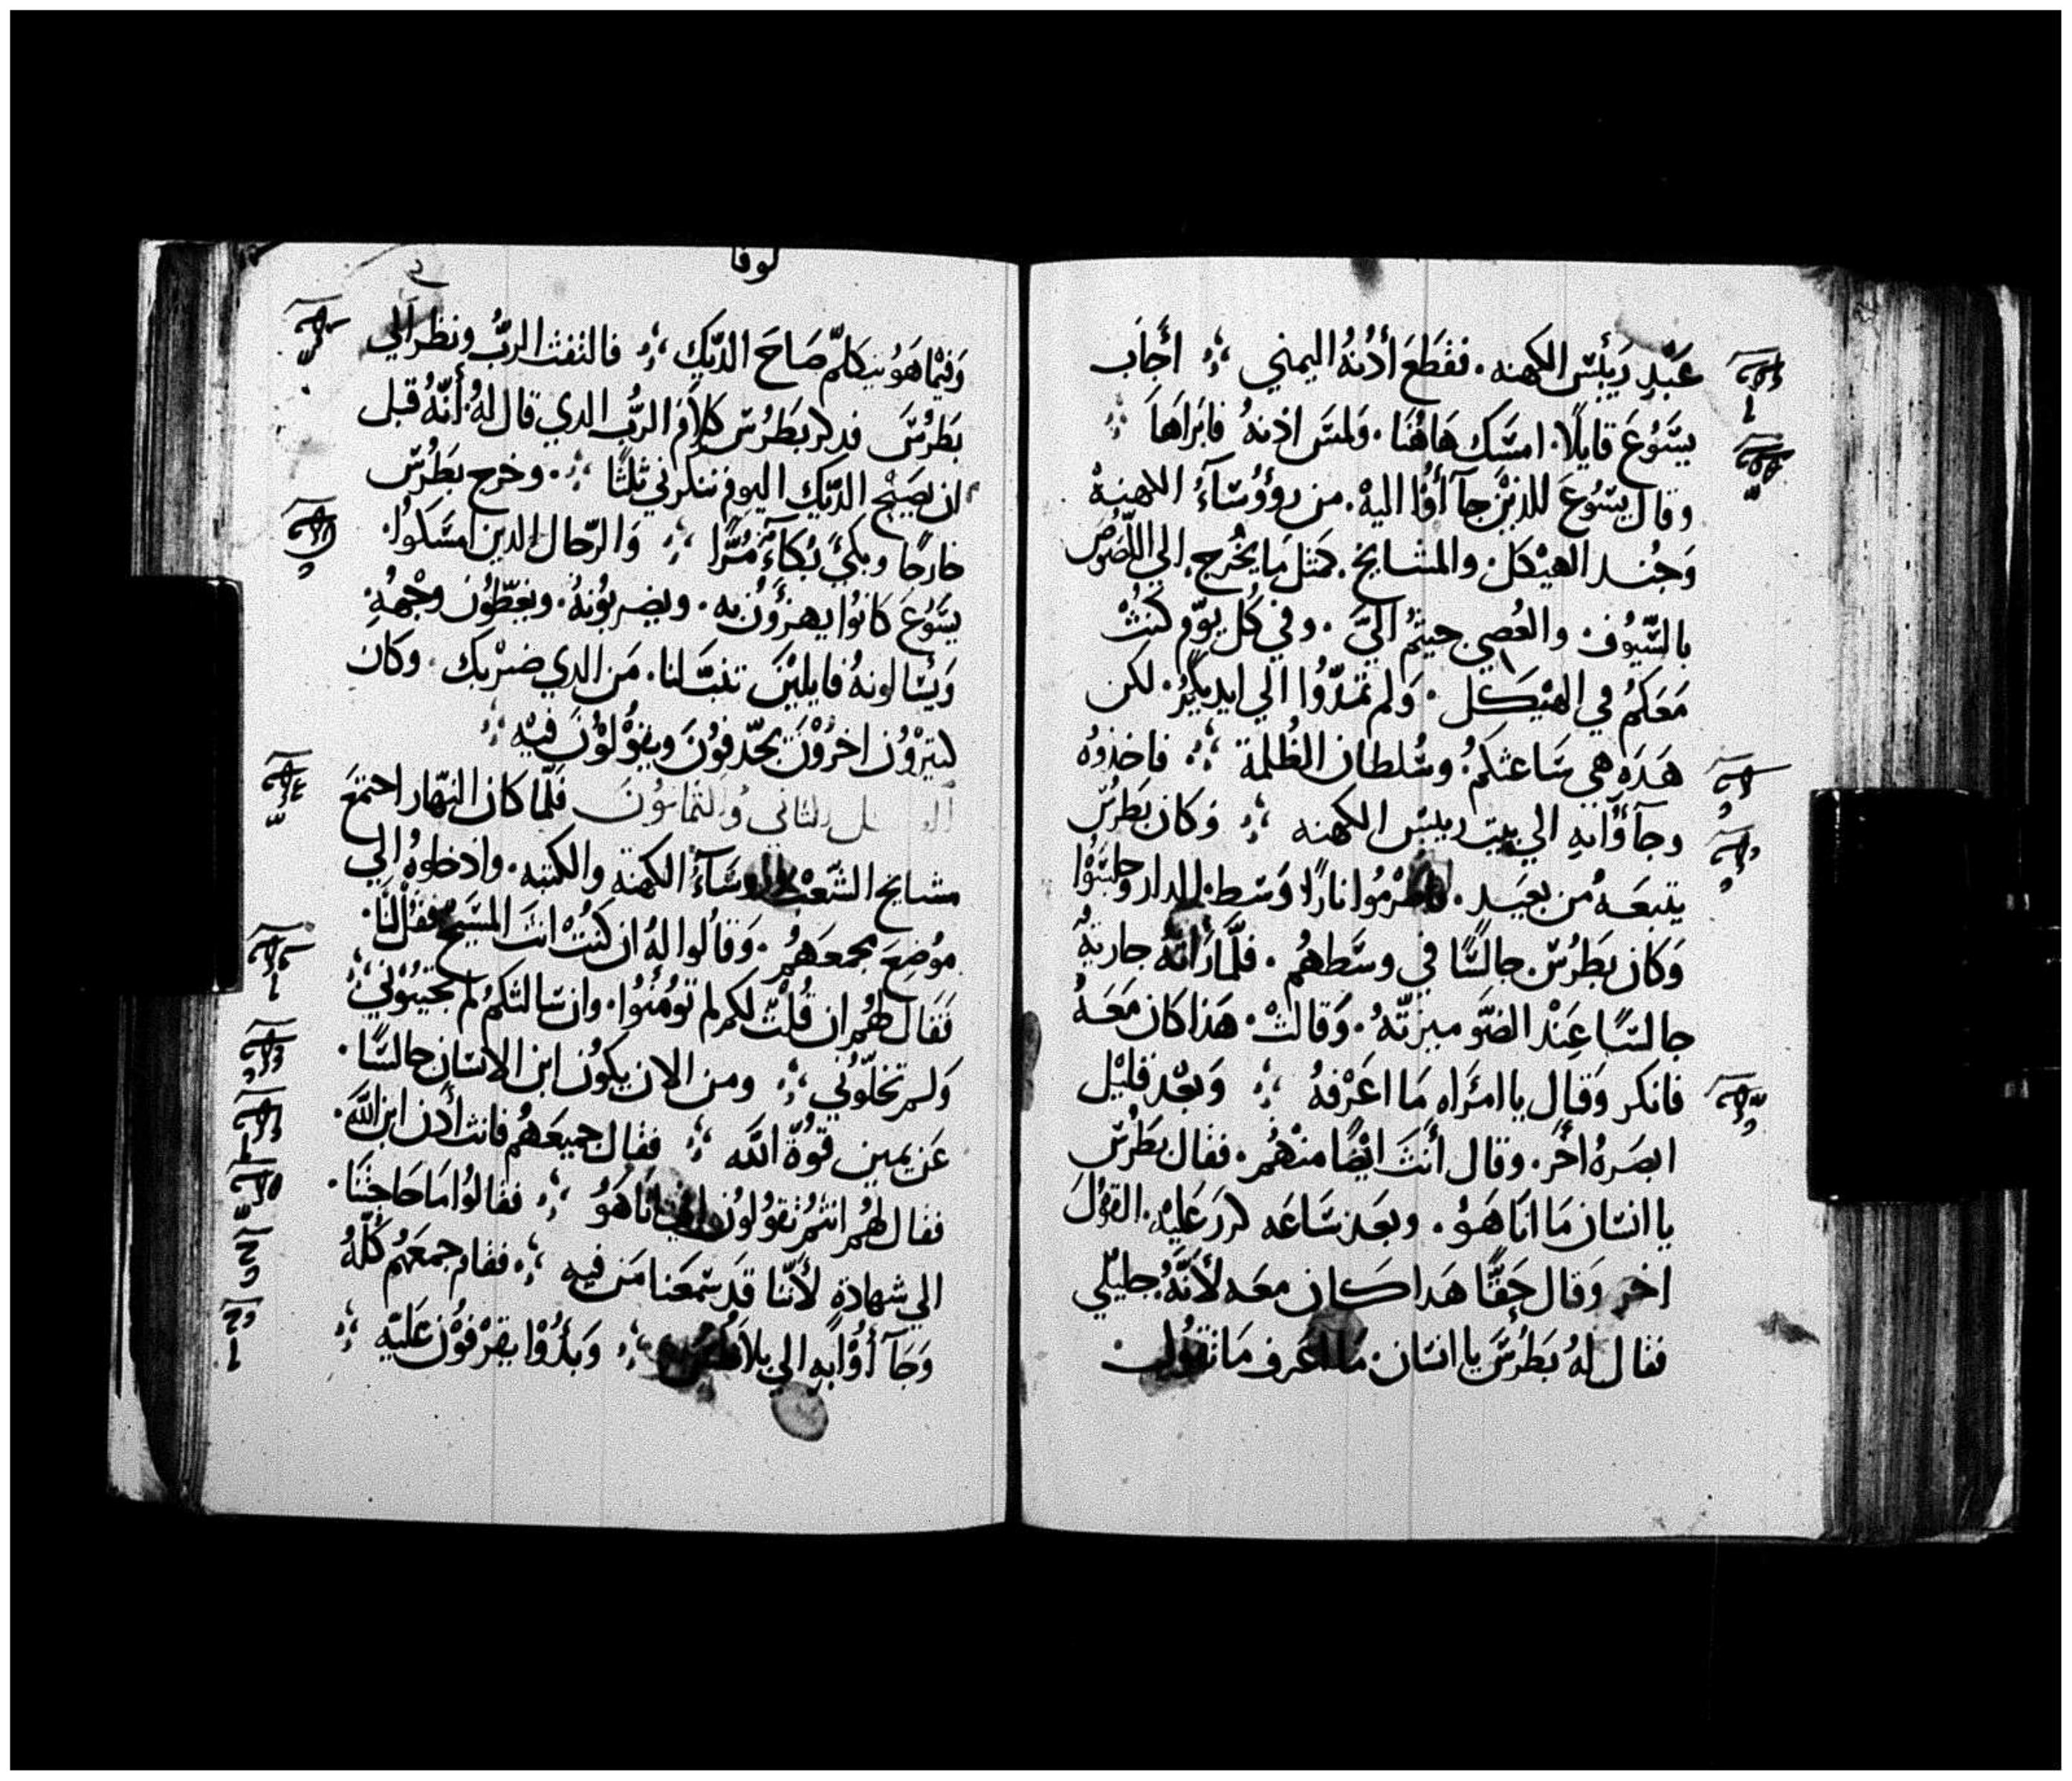 عَبْدِ رَئِيسَ الكهنه. فقطَعَ أُذُنهُ اليمني ܀ أَجَاب
يَسُوعَ قايلاً. امسَك هَاهُنَا. وَلمسَ اذنهُ فابَراَهَا ܀
وقال يسُوعَ للذينَ جآ أُوا اليهْ. من روؤُسَآءُ الكهنة
وَجُند الهيْكَل. والمشايخ. كمَثل مَا يخُرج. الي اللّصُوصُ
بالسّيُوف. والعُصِي جيتمُ اليَّ. وفي كُل يوْم كنتْ
مَعَكمُ في الهيْكل. وَلم تمدّوُا الي ايديكُم. لكن
هَدَه هي سَاعتكمُ. وسُلطان الظُلمة ܀ فاخذوُه
وجآ أوُا بهِ الي بيت رييس الكهنه ܀ وَكان بَطرُس
يتبعَهُ من بعيَد. فاضرمُوا نارًا وَسَط الدار وجلسَوُا
وَكان بَطرُس. جالسًا في وسَطهُم. فلّمارَأتهُ جاريةُ
جالسًا عِنْد الضَو ميزتّهُ. وَقالتْ. هَذا كان مَعَهُ
فانكر وَقال يا امرَاه مَا اعَرْفهُ ܀ وَبعْد قليْل
ابصَرهُ اخَر. وقال أَنتَ ايْضًا منْهُم. فقال بطَرُس
يا انسَان مَا انَا هَوُ. وبعَد سَاعَه كررَ عَليْه. القوْلَ
اخر وَقال حَقًا هَدا كان معَه لأَنَّهُ جليْلي
فقال لهُ بَطرُسَ يا انسَان. مَا اعَرف مَا تقوُل
لوقا
وَفيْما هَوُ يتكلّم صَاحَ الدّيَك ܀ فالتفت الربُّ ونظر الي
بَطرُسَ فدكر بَطرُس كلاَمَ الربُّ الدي قال لهُ. أَنّهُ قبل
ان يصَيْح الدّيَك اليوم تنكرني ثلثًا ܀ وخرج بطَرُس
خارجًا وبكيً بُكآءً مُرًّا ܀ وَالرّجال الدين امسَكوُا
يسَوُعَ كانوُا يهزَؤُن به. ويضربُونهُ. ويغطّوُن وجْههُ.
وَيسَالونهُ قايليْنَ تنبّ لنا. مَن الدي ضرَبك. وكان
كتيروْن اخرُوْنَ يجدّفوُنَ ويقوُلوُنَ فيْه ܀
الفصل الثاني وَالثمانوُنَ فلّما كان النّهار اجتمَعَ
مشايخ الشّعْب ورُوسَآءُ الكهنة والكتبه. وادخلوهُ الي
موُضِعَ مجمعَهمُ. وَقالوا لهُ ان كنتْ انتَ المسَيحُ فقل لنَا.
فَقال لهُم ان قُلتْ لكم لم توُمنُوا. وان سَالتكمُ لم تجيبُوني
وَلم تخلّوُني ܀ ومن الان يكوُن ابن الانسَان جالسًا.
عَن يمين قوُّة اللَّه ܀ فقال جميعَهمُ فانت أدن ابن اللَّه.
فقال لهُم انتمُ تقوُلوُن اني انَا هَوُ ܀ فقالوُا مَا حَاجتنَا.
الي شهادة لأَنّنا قد سَمعَنا مَن فيه ܀ فقام جمعَهُم كُلّهُ
وَجَآ أوُا بهِ الي بيلاطُس ܀ وَبدُؤُا يقرْفوُن عَليْه ܀